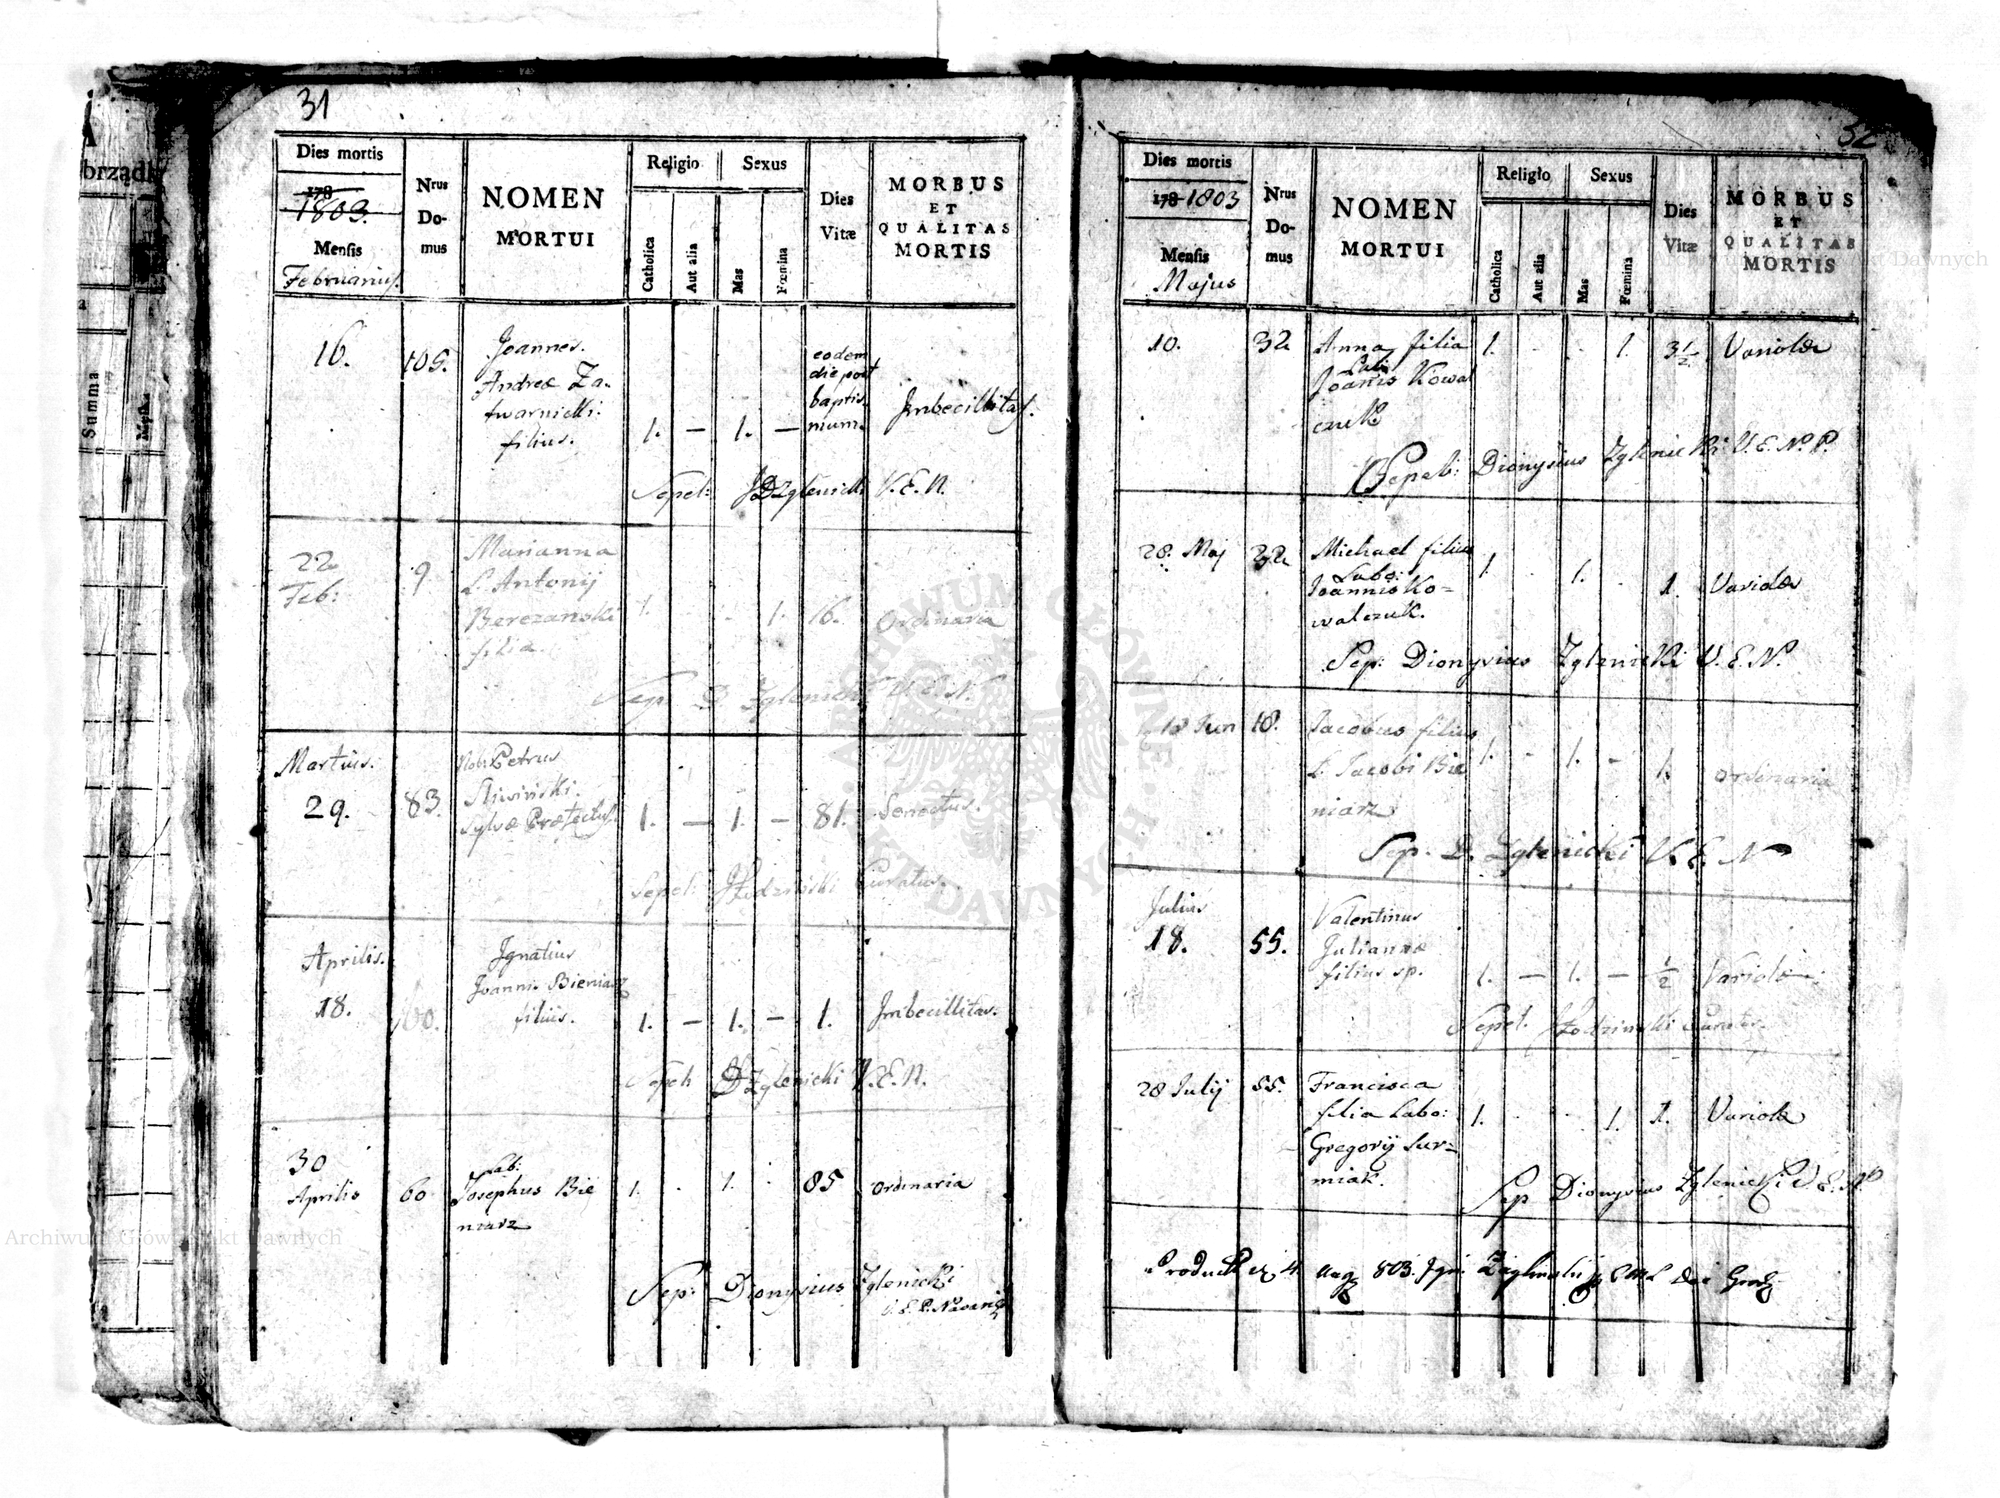 31
Dies mortis
178
1803.
Mensis
Februarius.
Nrus
Do-
mus
NOMEN
MORTUI
Religio
Sexus
Catholica
Aut alia
Mas
Fœmina
Dies
Vitæ
MORBUS
ET
QUALITAS
MORTIS
16.
105.
Joannes.
Andreæ Za-
twarnicki.
filius.
1. — 1. —
eodem
die post
baptis-
mum.
Imbecillitas.
Sepel: JDZglenicki V.E.N.
22
Feb:
9
Marianna
L. Antonij
Berezanski
filia.
1. . . 1. 16. Ordinaria
Sep. D. Zglenicki V.E.N.
Martius.
29.
83.
Nob: Petrus
Sliwinski.
Sylvæ Præfectus.
1. — 1. — 81. Senectus.
Sepel: Curatus.
Aprilis.
18.
60.
Ignatius
Joannis Bieniarz
filius.
1. — 1. — 1. Imbecillitas.
Sepel: D Zglenicki V.E.N.
30
Aprilis
60
Lab:
Josephus Bie
niarz
1. . 1. . 85 Ordinaria
Sep: Dionysius Zglenicki
32
Dies mortis
178 1803
Mensis
Majus
Nrus
Do-
mus
NOMEN
MORTUI
Religio
Sexus
Catholica
Aut alia
Mas
Fœmina
Dies
Vitæ
MORBUS
ET
QUALITAS
MORTIS
10.
32
Anna filia
Lab:
Joanis Kowal
czuk
1. . . 1. 3½ Variolæ
Sepeli: Dionysius Zglenicki V.E.N.P.
28. Maj
32
Michael filius
Labo:
Joannis Ko=
walczuk.
1. . 1. . 1. Variolæ
Sep: Dionysius Zglenicki V.E.N.
18 Jun
18.
Jacobus filius
L. Jacobi Bie
niarz
1. - 1. - 1. ordinaria
Sep. D. Zglenicki V.E.N
Julius
18.
55.
Valentinus
Juliannæ
filius sp.
1. — 1. — ½ Variolæ.
Sepel. Curatus.
28 Julij
55.
Francisca
filia Labo:
Gregorij Sur=
miak.
1. . . 1. 1. Variolæ
Sep Dionysius Zglenicki V.E.N.
4. Aug 803.
ARCHIWUM GŁÓWNE AKT DAWNYCH
Archiwum Główne Akt Dawnych
Akt Dawnych
brządk
Summa